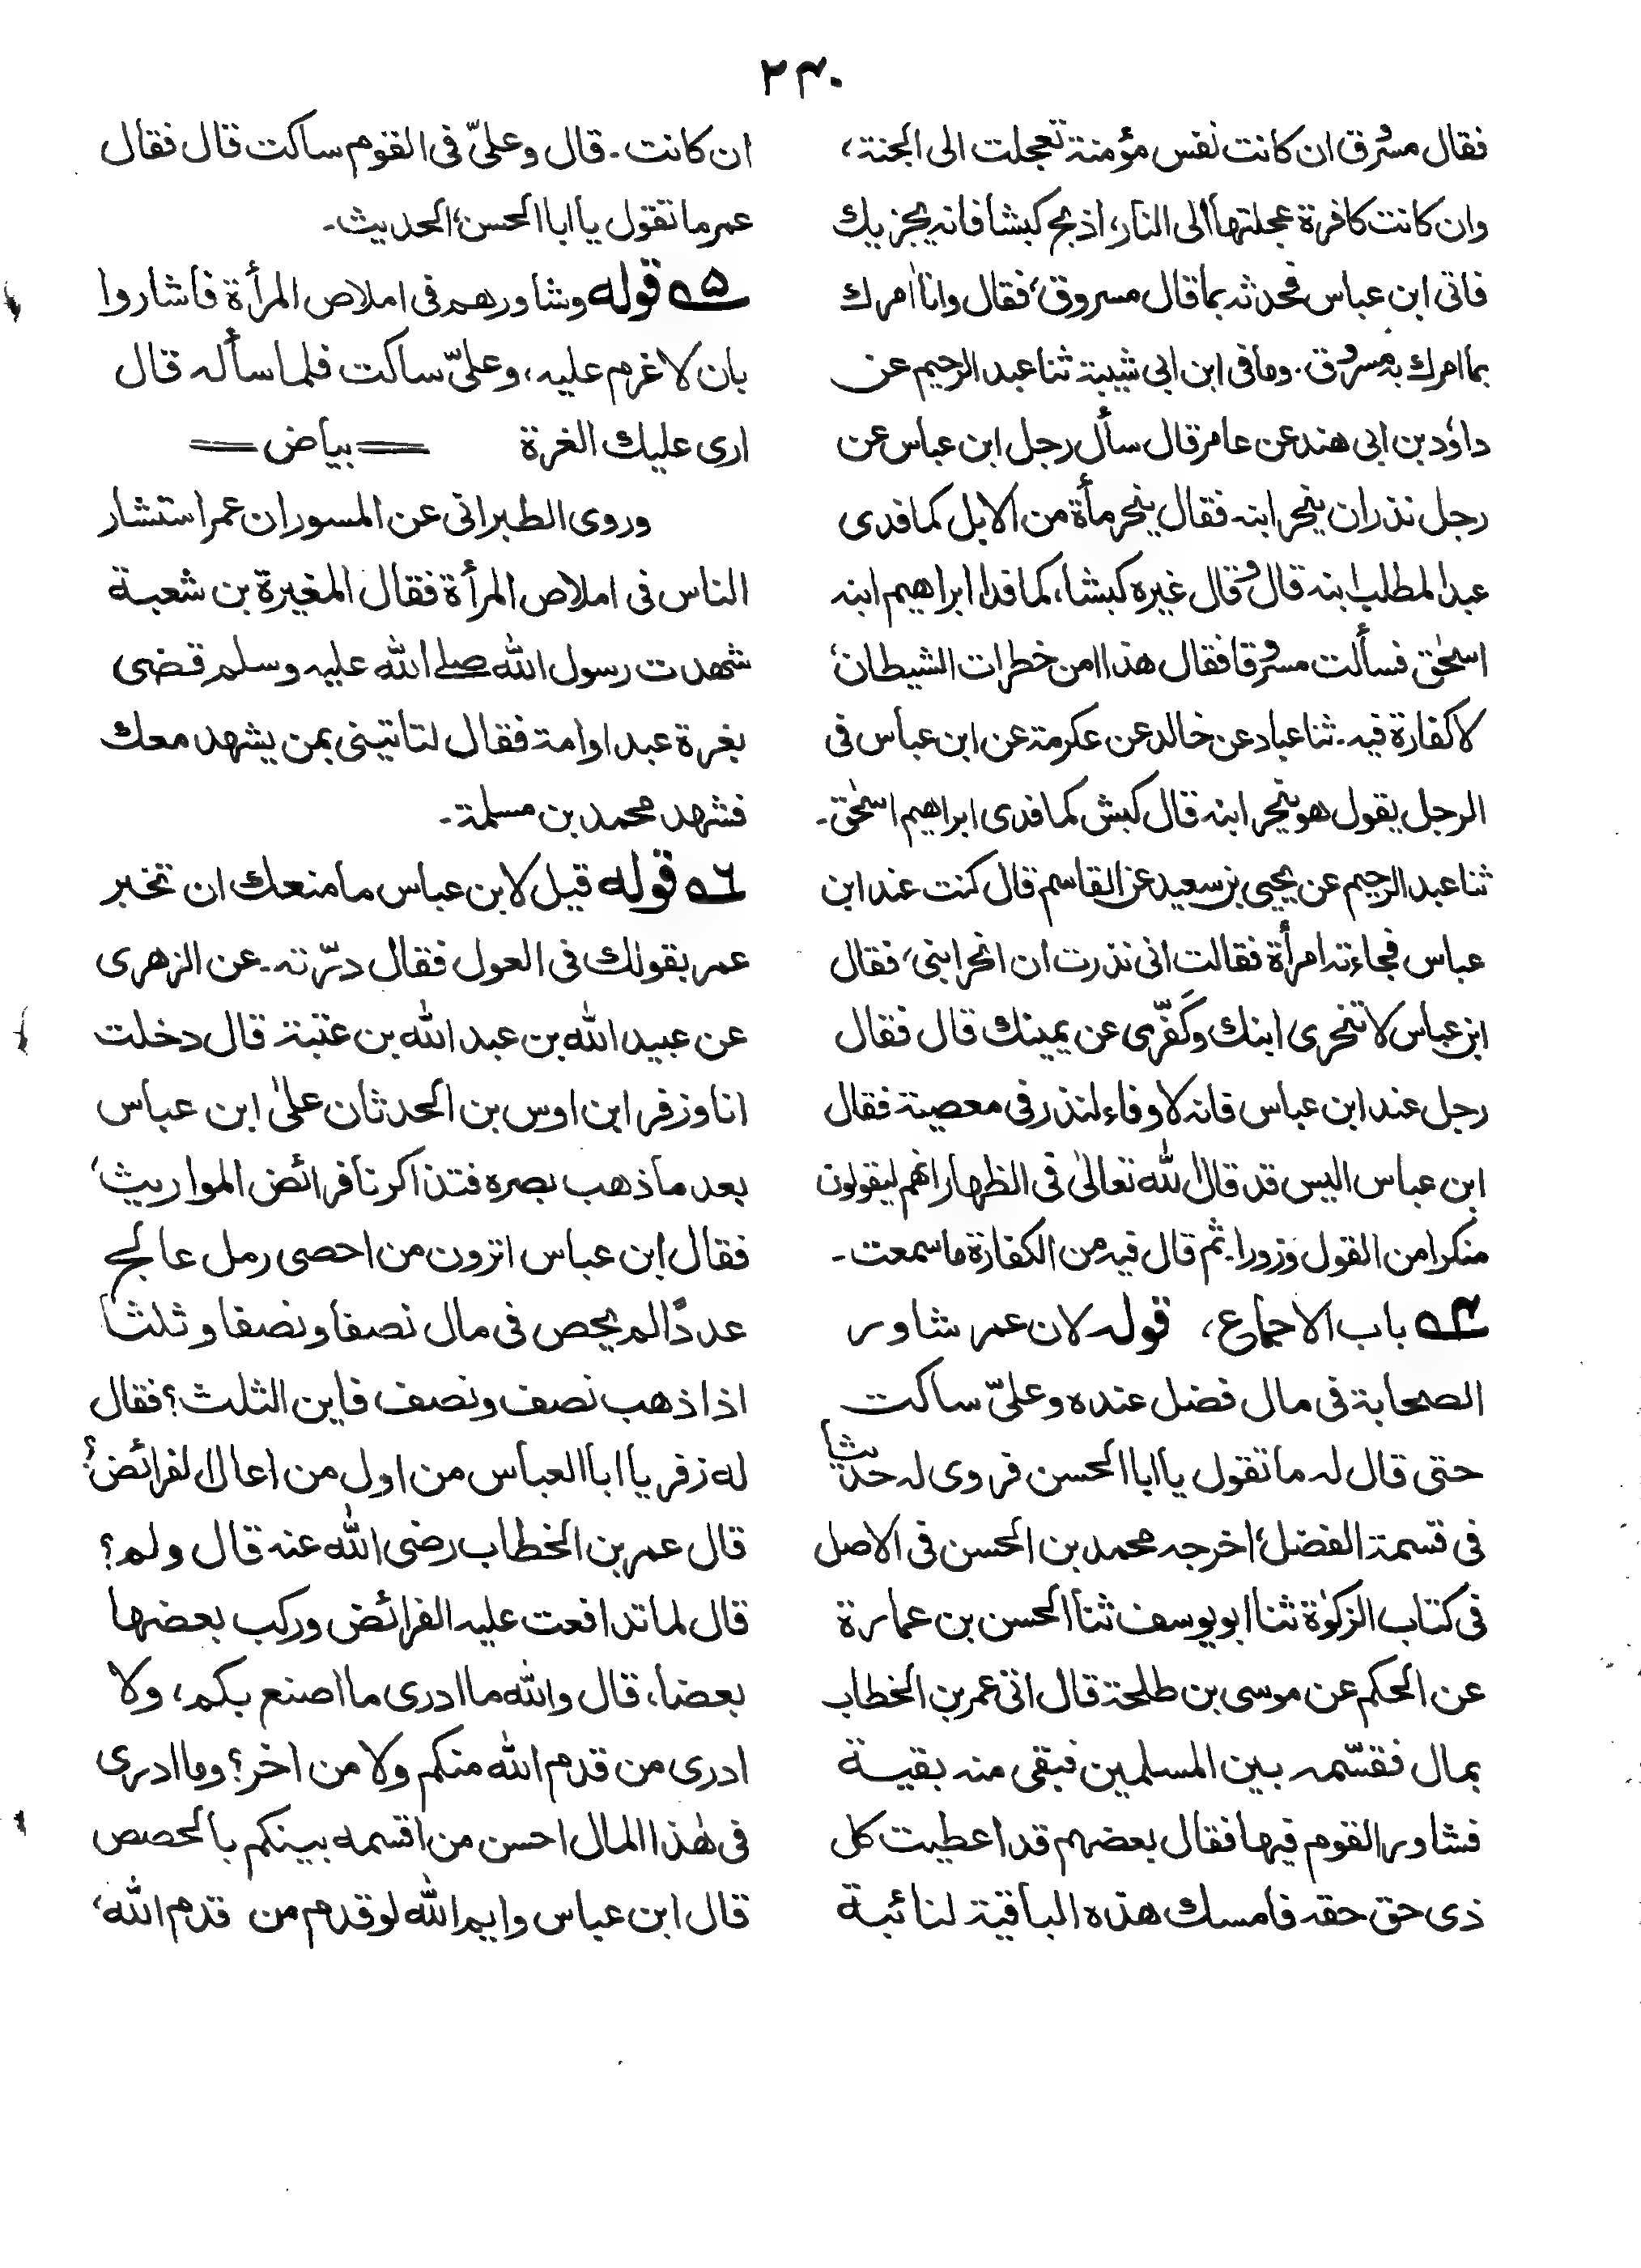 ۲۴۰
فقال مسروق ان كانت نفس مؤمنة تعجلت الى الجنة،
وان كانت كافرة عجلتها الى النار، اذبح كبشا فانه يجزيك
فاتى ابن عباس فحدثه بما قال مسروق، فقال وانا امرك
بما امرك به مسروق. وما فى ابن ابى شيبة ثنا عبد الرحيم عن
داؤد بن ابى هند عن عامر قال سأل رجل ابن عباس عن
رجل نذر ان ينحر ابنه فقال ينحر مأة من الابل كما فدى
عبد المطلب ابنه قال وقال غيره كبشا، كما فدا ابراهيم ابنه
اسحٰق فسألت مسروقا فقال هذا من خطرات الشيطان،
لا كفارة فيه۔ ثنا عباد عن خالد عن عكرمة عن ابن عباس فى
الرجل يقول هو ينحر ابنه قال كبش كما فدى ابراهيم اسحٰق۔
ثنا عبد الرحيم عن يحيى بن سعيد عن القاسم قال كنت عند ابن
عباس فجاءته امرأة فقالت انى نذرت ان انحر ابنى، فقال
ابن عباس لا تنحرى ابنك وكَفّرى عن يمينك قال فقال
رجل عند ابن عباس فانه لا وفاء لنذر فى معصية فقال
ابن عباس اليس قد قال الله تعالىٰ فى الظهار انهم ليقولون
منكرا من القول وزورا۔ ثم قال فيه من الكفارة ما سمعت۔
۵۴ باب الاجماع، قوله لان عمر شاور
الصحابة فى مال فضل عنده وعلىّ ساكت
حتى قال له ما تقول يا ابا الحسن فروى له حديثا
فى قسمة الفضل، اخرجه محمد بن الحسن فى الاصل
فى كتاب الزكوٰة ثنا ابو يوسف ثنا الحسن بن عمارة
عن الحكم عن موسى بن طلحة قال اتى عمر بن الخطاب
بمال فقسّمه بين المسلمين فبقى منه بقية
فشاور القوم فيها فقال بعضهم قد اعطيت كل
ذى حق حقه فامسك هذه الباقية لنائبة
ان كانت۔ قال وعلىّ فى القوم ساكت قال فقال
عمر ما تقول يا ابا الحسن، الحديث۔
۵۵ قوله وشاورهم فى املاص المرأة فاشاروا
بان لا غرم عليه، وعلىّ ساكت فلما سأله قال
ارى عليك الغرة == بياض ==
وروى الطبرانى عن المسور ان عمر استشار
الناس فى املاص المرأة فقال المغيرة بن شعبة
شهدت رسول الله صلے الله عليه وسلم قضى
بغرة عبد او امة فقال لتأتينى بمن يشهد معك
فشهد محمد بن مسلمة۔
۵۶ قوله قيل لابن عباس ما منعك ان تخبر
عمر بقولك فى العول فقال درّته۔ عن الزهرى
عن عبيد الله بن عبد الله بن عتبة قال دخلت
انا وزفر ابن اوس بن الحدثان علىٰ ابن عباس
بعد ما ذهب بصره فتذاكرنا فرائض المواريث،
فقال ابن عباس اترون من احصى رمل عالج
عددًا لم يحص فى مال نصفا ونصفا وثلثا
اذا ذهب نصف ونصف فاين الثلث؟ فقال
له زفر يا ابا العباس من اول من اعال الفرائض؟
قال عمر بن الخطاب رضى الله عنه قال ولم؟
قال لما تدافعت عليه الفرائض وركب بعضها
بعضا، قال والله ما ادرى ما اصنع بكم، ولا
ادرى من قدم الله منكم ولا من اخر؟ وما ادرى
فى هٰذا المال احسن من اقسمه بينكم بالحصص
قال ابن عباس وايم الله لو قدم من قدم الله،